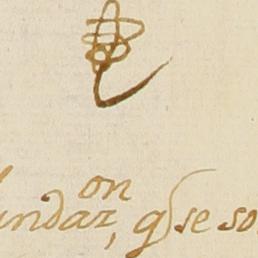 on
undaz, q se so